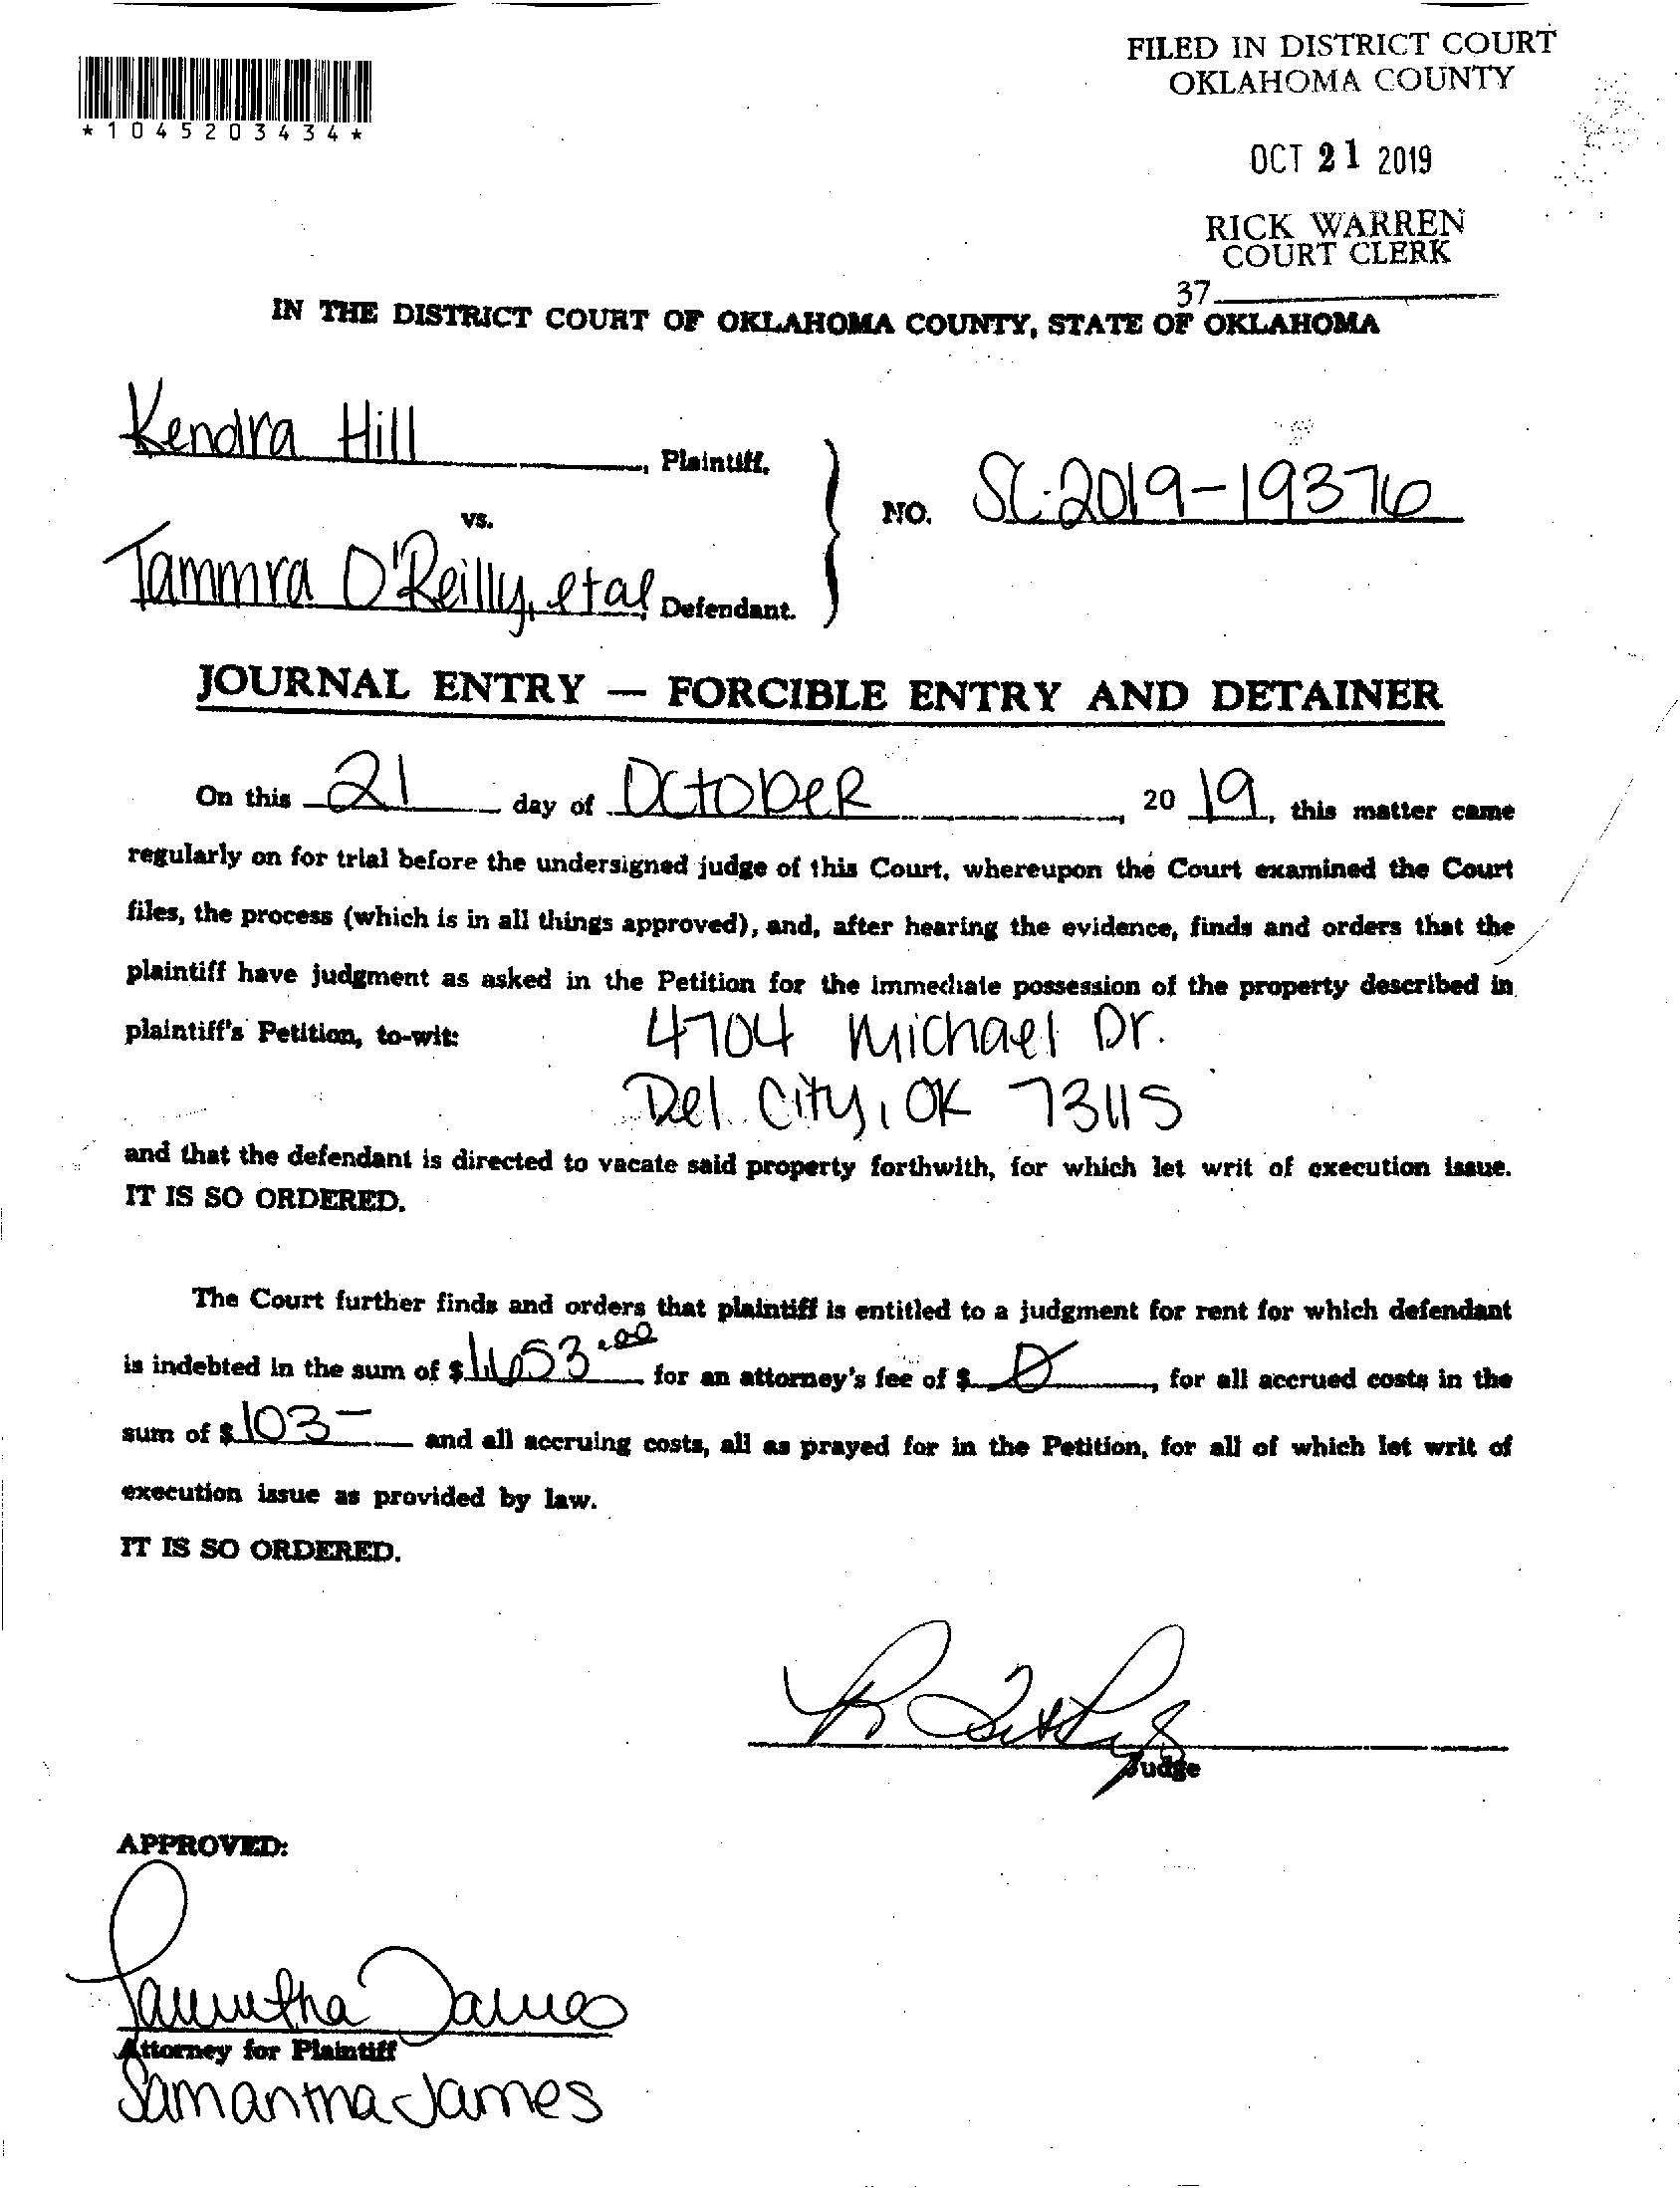 FILED IN DISTRICT COURT
OKLAHOMA COUNTY
*1045203434*
OCT 21 2019
RICK WARREN
COURT CLERK
37
IN THE DISTRICT COURT OF OKLAHOMA COUNTY, STATE OF OKLAHOMA
Kendra Hill, Plaintiff,
vs.
NO. SC-2019-19376
Tammra O'Reilly, et al, Defendant.
JOURNAL ENTRY — FORCIBLE ENTRY AND DETAINER
On this 21 day of October, 2019, this matter came
regularly on for trial before the undersigned judge of this Court, whereupon the Court examined the Court
files, the process (which is in all things approved), and, after hearing the evidence, finds and orders that the
plaintiff have judgment as asked in the Petition for the immediate possession of the property described in
plaintiff's Petition, to-wit: 4704 Michael Dr.
Del City, OK 73115
and that the defendant is directed to vacate said property forthwith, for which let writ of execution issue.
IT IS SO ORDERED.
The Court further finds and orders that plaintiff is entitled to a judgment for rent for which defendant
is indebted in the sum of $ for an attorney's fee of $ Ø, for all accrued costs in the
sum of $103- and all accruing costs, all as prayed for in the Petition, for all of which let writ of
execution issue as provided by law.
IT IS SO ORDERED.
Judge
APPROVED:
Samantha James
Attorney for Plaintiff
Samantha James